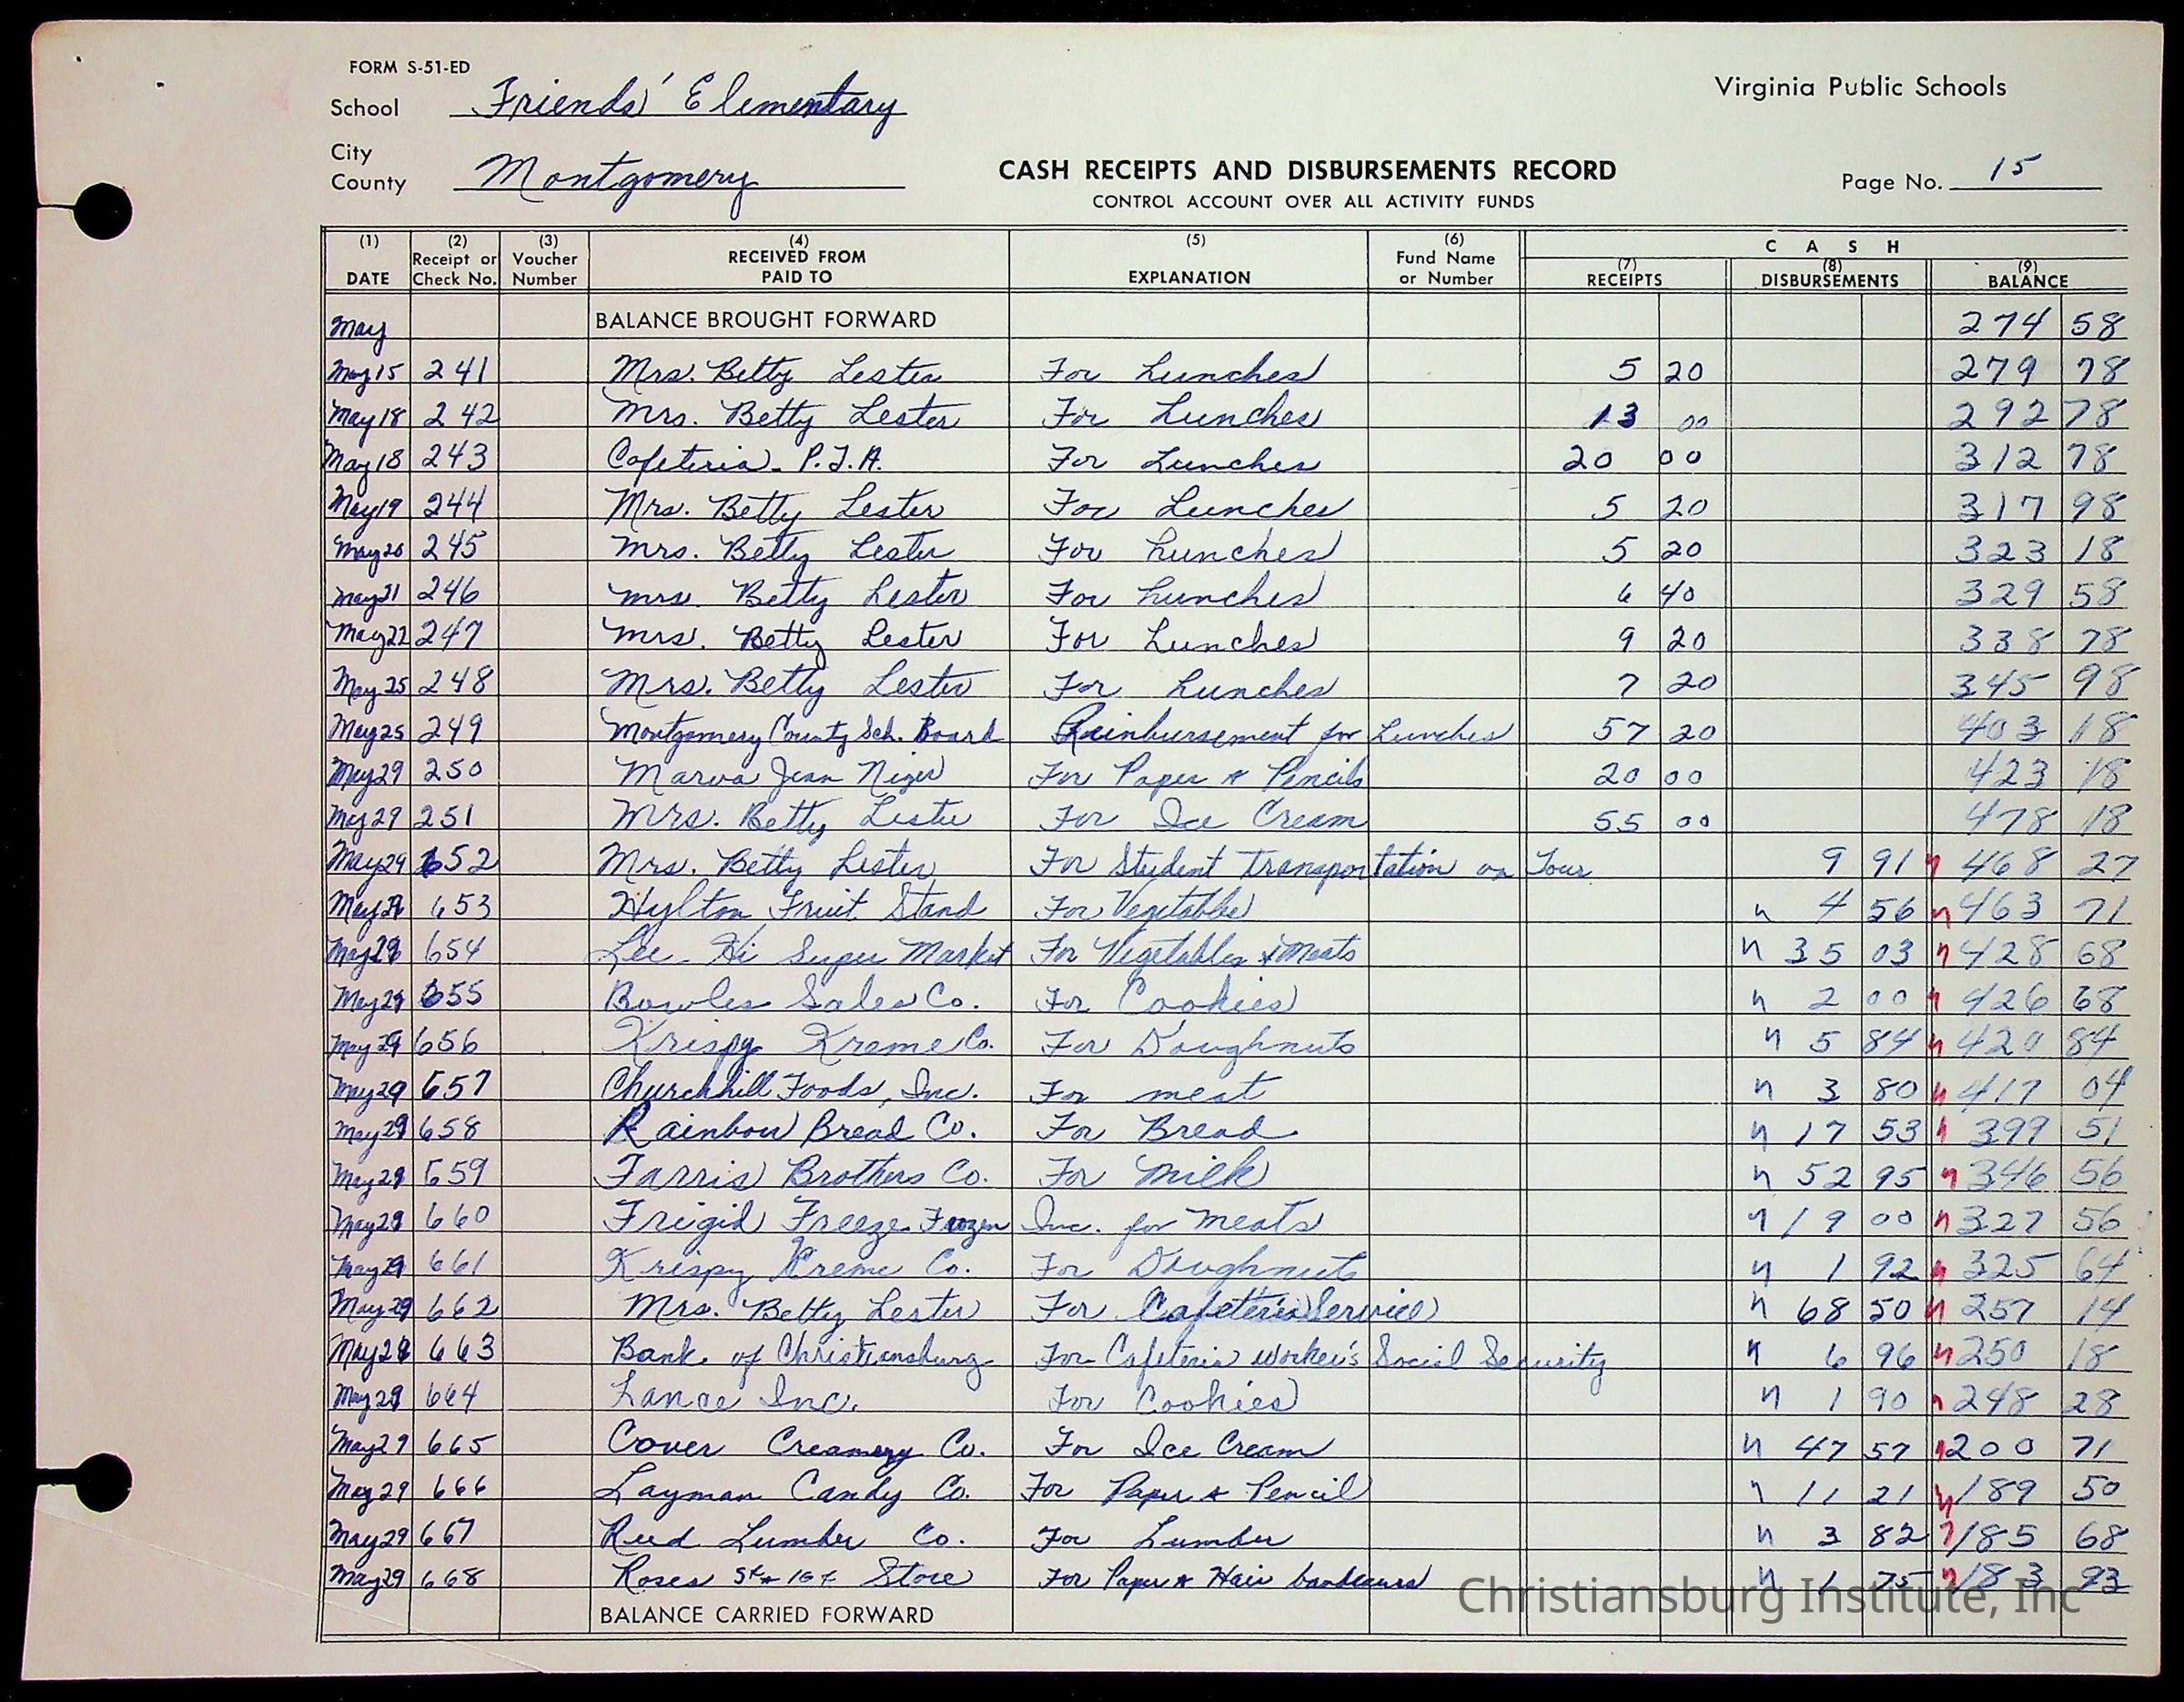 FORM S-51-ED
School Friends' Elementary
Virginia Public Schools
City
County Montgomery
CASH RECEIPTS AND DISBURSEMENTS RECORD
CONTROL ACCOUNT OVER ALL ACTIVITY FUNDS
Page No. 15
(1) DATE (2) Receipt or Check No. (3) Voucher Number (4) RECEIVED FROM PAID TO (5) EXPLANATION (6) Fund Name or Number CASH (7) RECEIPTS (8) DISBURSEMENTS (9) BALANCE
May BALANCE BROUGHT FORWARD 274 58
May 15 241 Mrs. Betty Lester For Lunches 5 20 279 78
May 18 242 Mrs. Betty Lester For Lunches 13 00 292 78
May 18 243 Cafeteria - P.T.A. For Lunches 20 00 312 78
May 19 244 Mrs. Betty Lester For Lunches 5 20 317 98
May 20 245 Mrs. Betty Lester For Lunches 5 20 323 18
May 21 246 Mrs. Betty Lester For Lunches 6 40 329 58
May 22 247 Mrs. Betty Lester For Lunches 9 20 338 78
May 25 248 Mrs. Betty Lester For Lunches 7 20 345 98
May 25 249 Montgomery County Sch. Board Reinbursement for Lunches 57 20 403 18
May 29 250 Marva Jean For Paper & Pencils 20 00 423 18
May 29 251 Mrs. Betty Lester For Ice Cream 55 00 478 18
May 29 652 Mrs. Betty Lester For Student Transportation on Tour 9 91 468 27
May 29 653 Hylton Fruit Stand For Vegetables 4 56 463 71
May 29 654 Lee-Hi Super Market For Vegetables & Meats 35 03 428 68
May 29 655 Bowles Sales Co. For Cookies 2 00 426 68
May 29 656 Krispy Kreme Co. For Doughnuts 5 84 420 84
May 29 657 Churchhill Foods, Inc. For meat 3 80 417 04
May 29 658 Rainbow Bread Co. For Bread 17 53 399 51
May 29 659 Farris Brothers Co. For Milk 52 95 346 56
May 29 660 Frigid Freeze Frozen Inc. for meats 19 00 327 56
May 29 661 Krispy Kreme Co. For Doughnuts 1 92 325 64
May 29 662 Mrs. Betty Lester For Cafeteria Service 68 50 257 14
May 29 663 Bank of Christiansburg For Cafeteria Worker's Social Security 6 96 250 18
May 29 664 Lance Inc. For Cookies 1 90 248 28
May 29 665 Cover Creamery Co. For Ice Cream 47 57 200 71
May 29 666 Layman Candy Co. For Paper & Pencil 11 21 189 50
May 29 667 Reed Lumber Co. For Lumber 3 82 185 68
May 29 668 Roses 5¢ & 10¢ Store For Paper & Hair bandeaurs 1 75 183 93
BALANCE CARRIED FORWARD
Christiansburg Institute, Inc